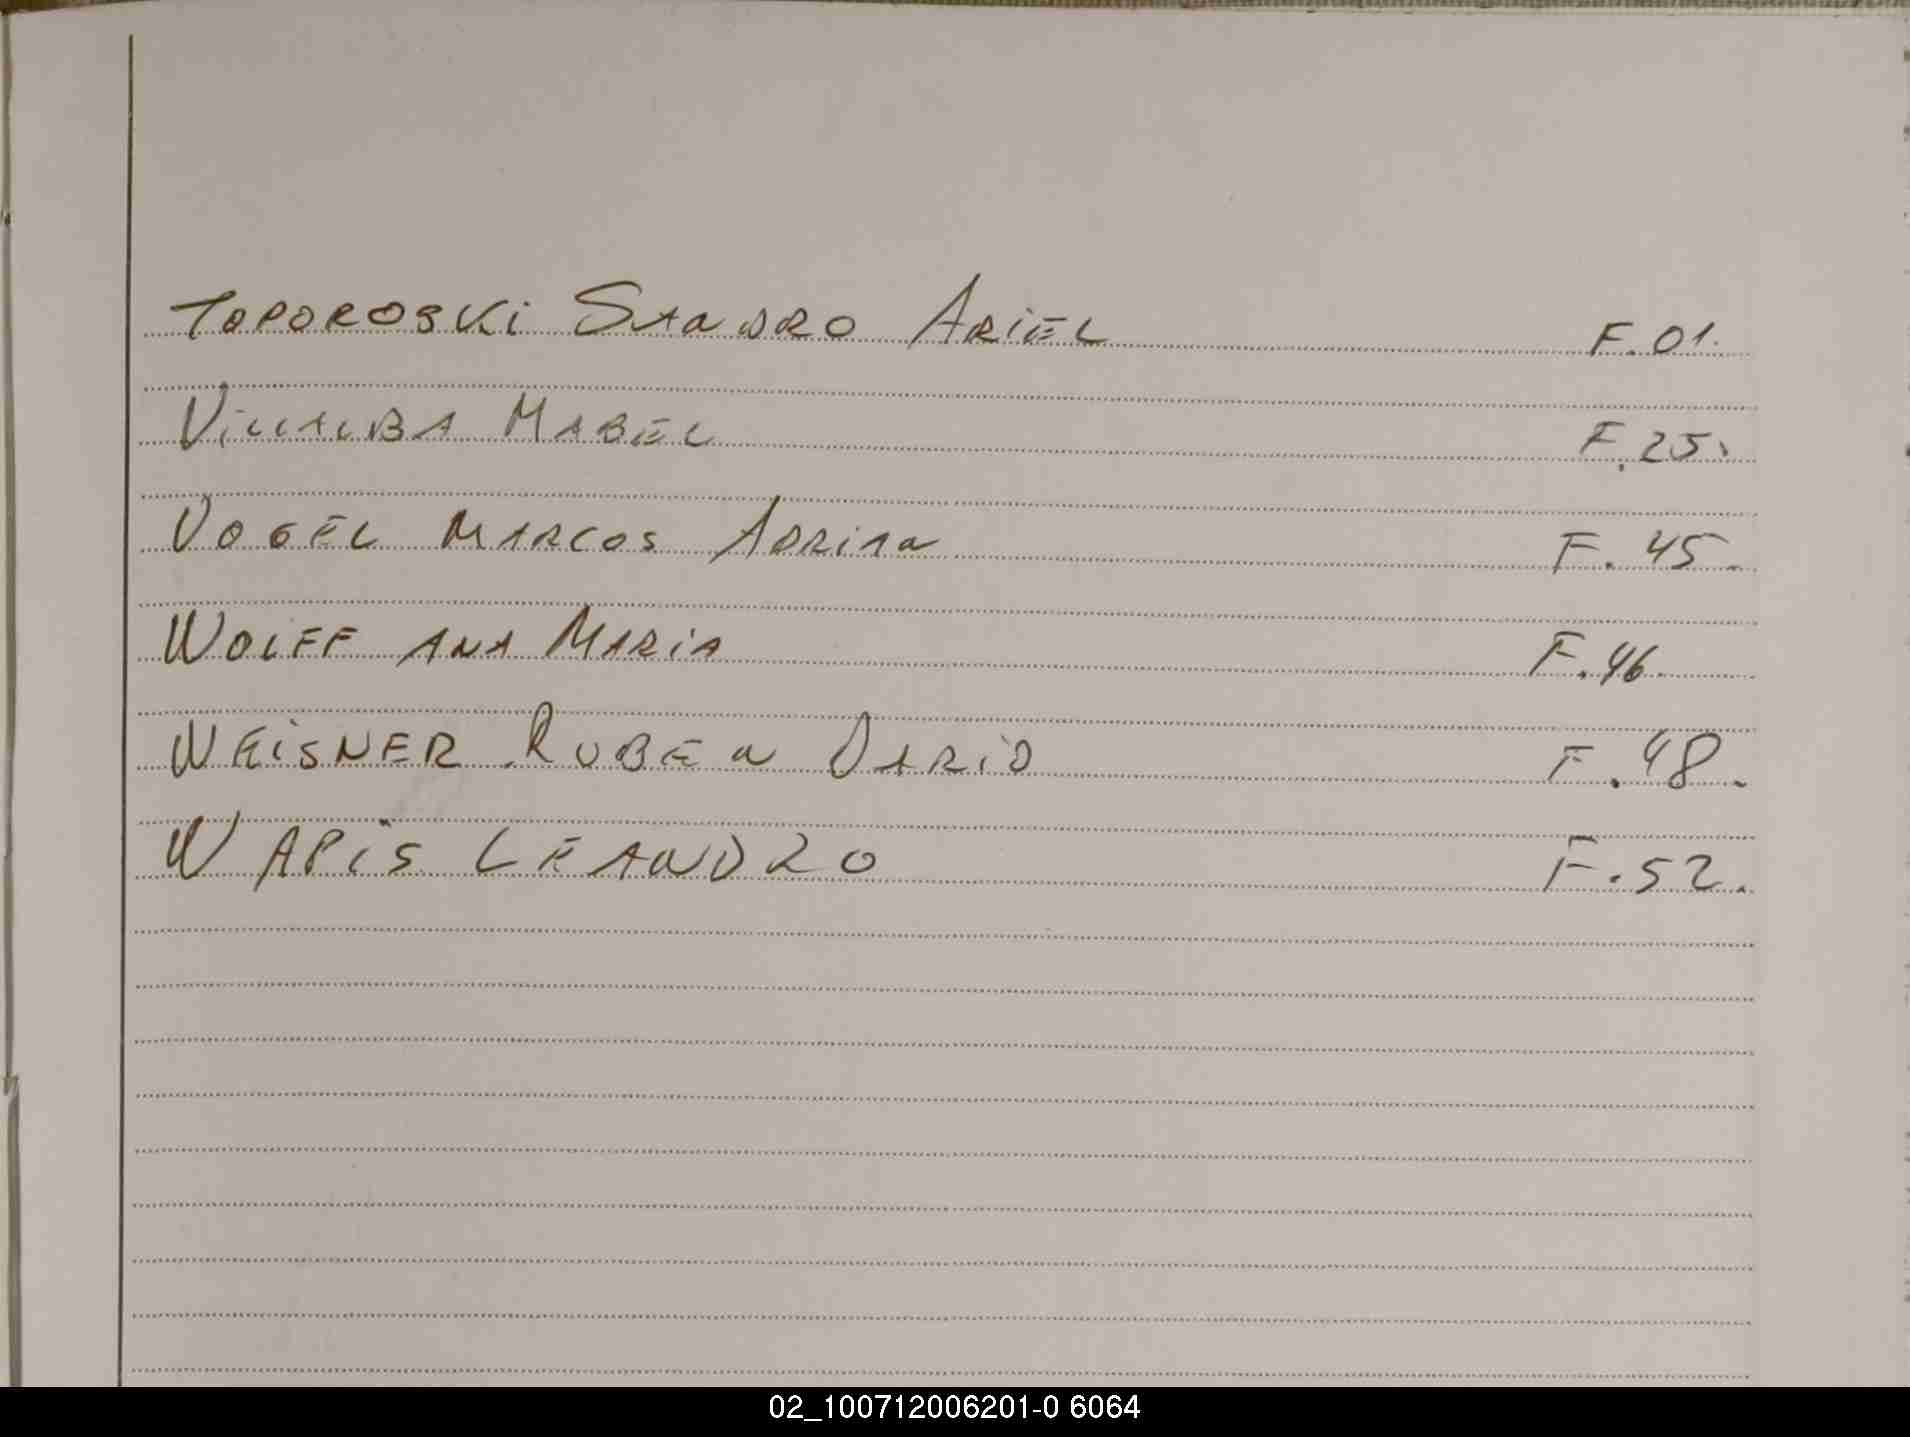 TOPOROSKI SANDRO ARIEL F.01.
VILLALBA MABEL F.25.
VOGEL MARCOS ADRIAN F.45.
WOLFF ANA MARIA F.46.
WEISNER RUBEN DARIO F.48.
WAPIS LEANDRO F.52.
02_100712006201-0 6064